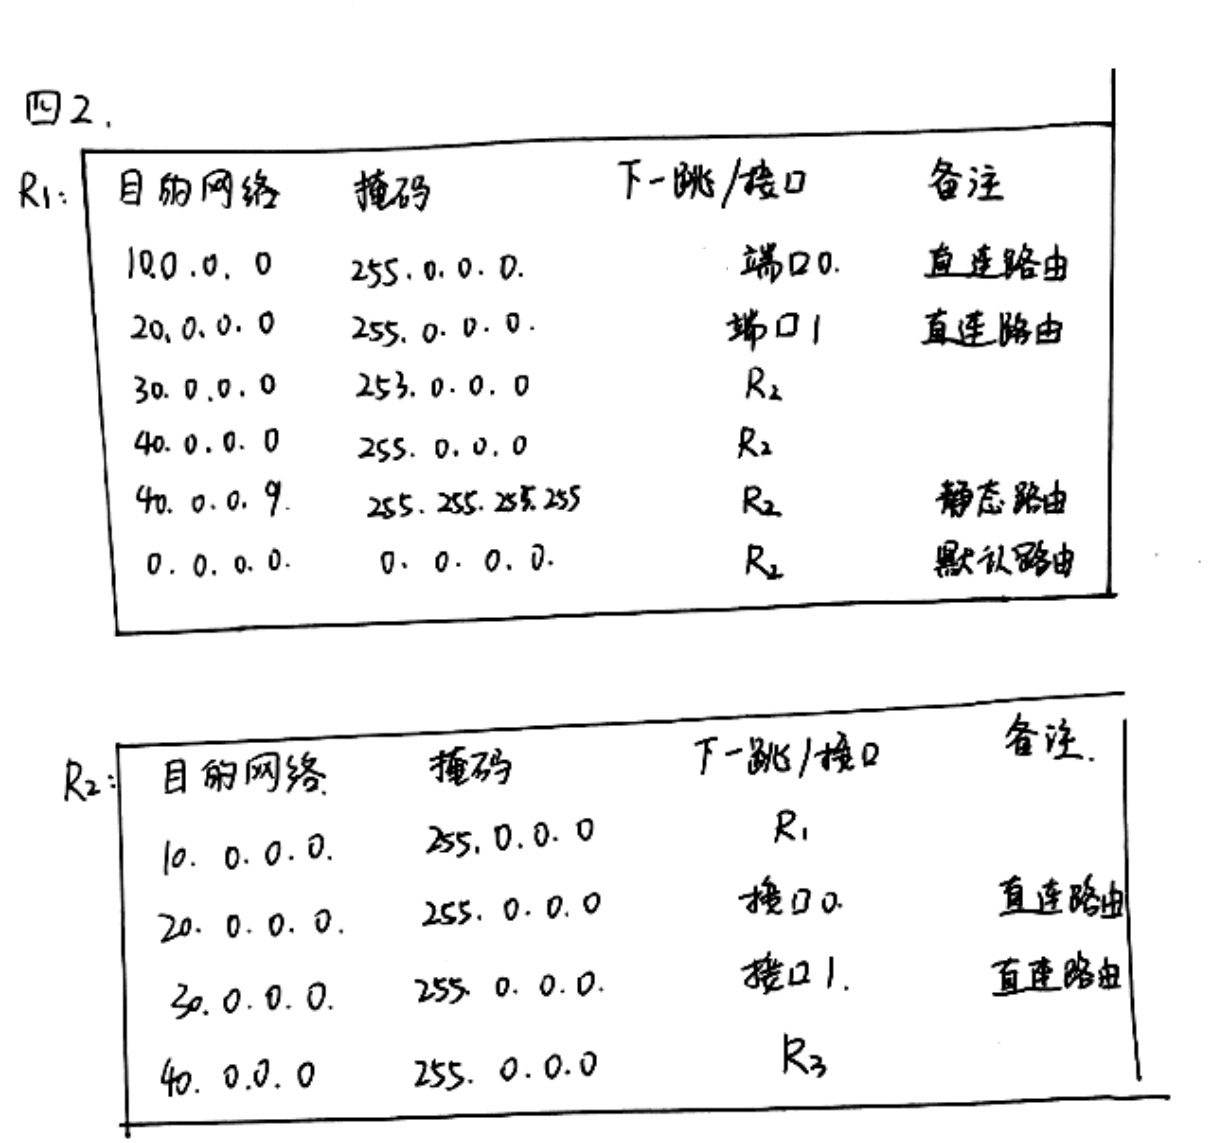 四2.
R1: 目的网络 掩码 下一跳/接口 备注
10.0.0.0 255.0.0.0. 端口0. 直连路由
20.0.0.0 255.0.0.0. 端口1 直连路由
30.0.0.0 253.0.0.0 R2
40.0.0.0 255.0.0.0 R2
40.0.0.9. 255.255.255.255 R2 静态路由
0.0.0.0. 0.0.0.0. R2 默认路由
R2: 目的网络. 掩码 下一跳/接口 备注.
10.0.0.0. 255.0.0.0 R1
20.0.0.0. 255.0.0.0 接口0. 直连路由
30.0.0.0. 255.0.0.0. 接口1. 直连路由
40.0.0.0 255.0.0.0 R3